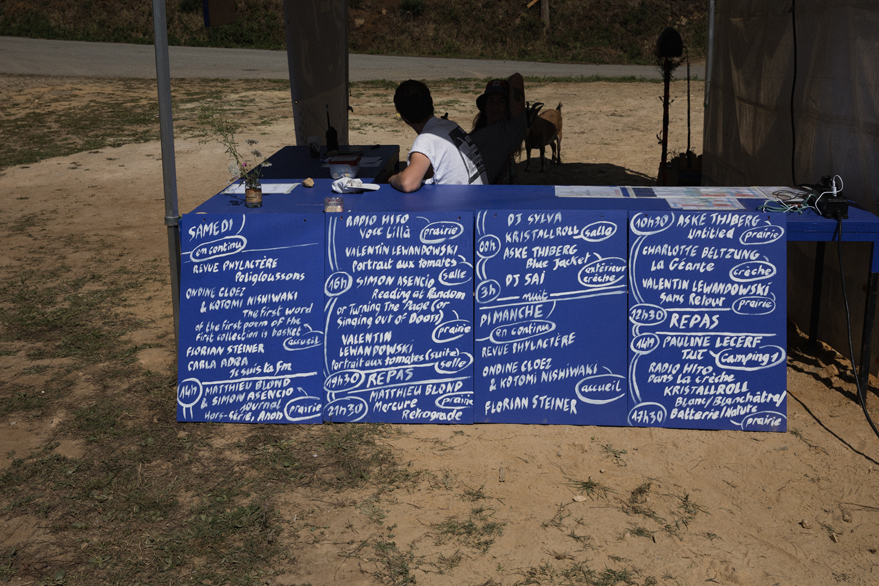 SAMEDI
en continu
REVUE PHYLACTÈRE
Poligloussons
ONDINE CLOEZ
& KOTOMI NISHIWAKI
The first word
of the first poem of the
first collection is basket
accueil
FLORIAN STEINER
CARLA ADRA
Je suis la fm
14h
MATTHIEU BLOND
& SIMON ASENCIO
Journal
Hors-série, Anon
prairie
RADIO HITO
Voce Lillà
prairie
VALENTIN LEWANDOWSKI
Portrait aux tomates
salle
16h
SIMON ASENCIO
Reading at Random
or Turning the Page (or
Singing out of Doors)
prairie
VALENTIN
LEWANDOWSKI
Portrait aux tomates (suite)
salle
19h30
REPAS
21h30
MATTHIEU BLOND
Mercure
Rétrograde
prairie
DJ SYLVA
KRISTALLROLL
salle
00h
ASKE THIBERG
Blue Jacket
extérieur
crèche
DJ SAÍ
3h
nuit
DIMANCHE
en continu
REVUE PHYLACTÈRE
ONDINE CLOEZ
& KOTOMI NISHIWAKI
accueil
FLORIAN STEINER
10h30
ASKE THIBERG
Untitled
prairie
CHARLOTTE BELTZUNG
La Géante
crèche
VALENTIN LEWANDOWSKI
Sans Retour
prairie
12h30
REPAS
14h
PAULINE LECERF
TUT
Camping 1
RADIO HITO
Dans la crèche
KRISTALLROLL
Blanc/Blanchâtre/
Batterie/Nature
17h30
prairie